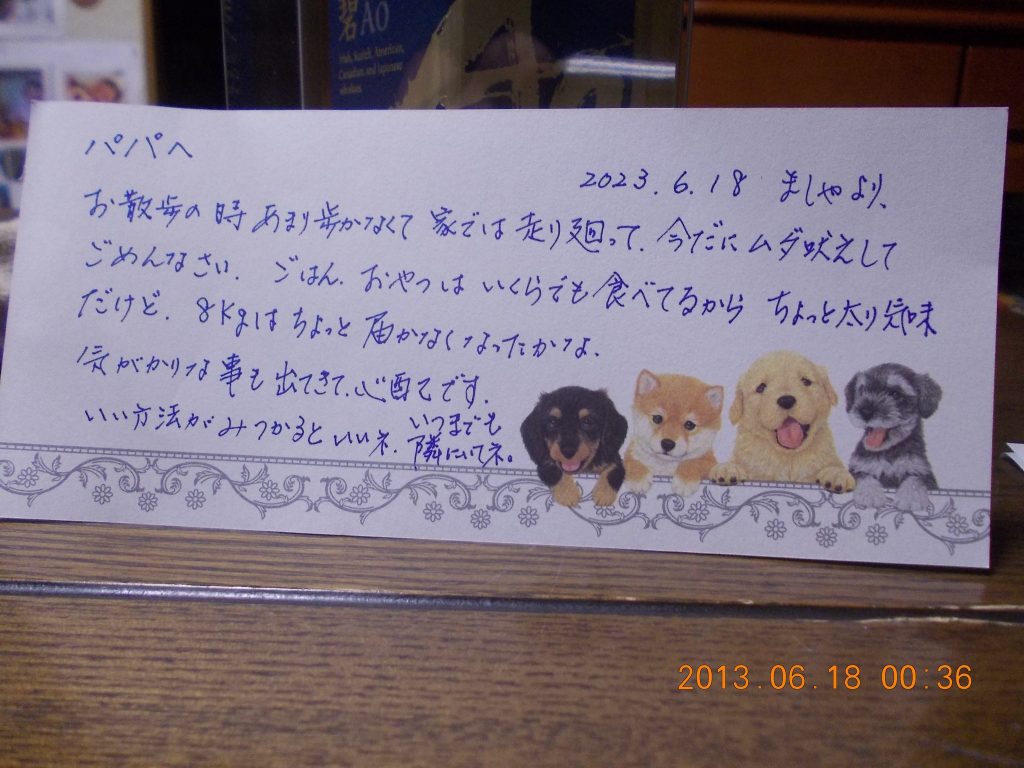 碧 AO
Irish, Scotch, American,
Canadian and Japanese
whiskies
パパへ
2023.6.18 ましゃより、
お散歩の時 あまり歩かなくて 家では走り廻って、今だにムダ吠えして
ごめんなさい。ごはん、おやつは いくらでも食べてるから ちょっと太り気味
だけど、8Kgはちょっと 届かなくなったかな、
気がかりな事も出てきて、心配です。
いい方法がみつかるといいネ、いつまでも
隣にいてネ。
2013.06.18 00:36